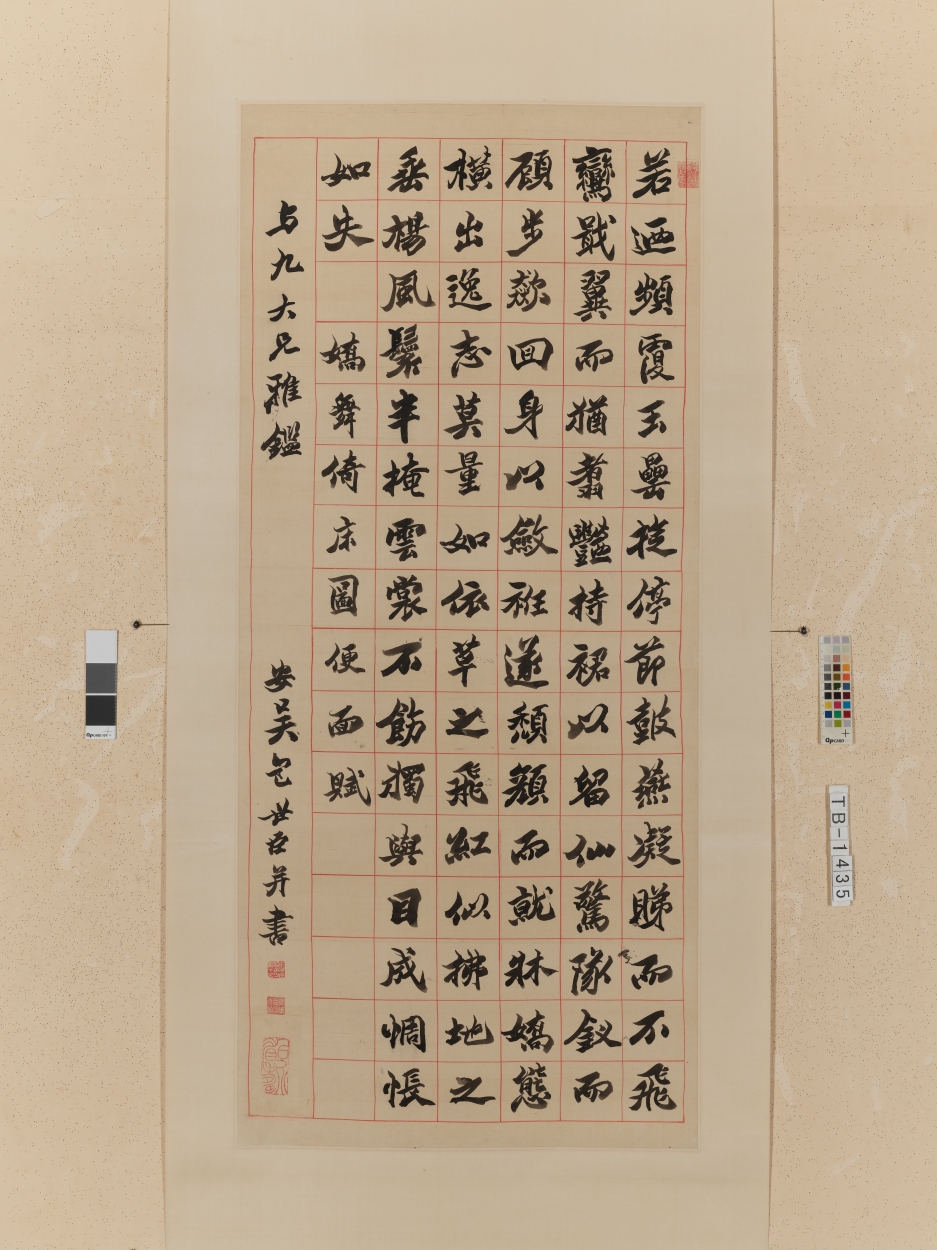 若迺頻覆玉罍徒停節鼓燕凝睇而不飛
鸞戢翼而猶翥豔持裙以留仙驚隊釵而
顧步欻回身以斂袵遂頳顏而就牀嬌態
橫出逸志莫量如依草之飛紅似拂地之
垂楊風鬟半掩雲裳不飭獨與目成惆悵
如失
嬌舞倚床圖便面賦
与九大兄雅鑑
安吳包世臣并書
TB-1435